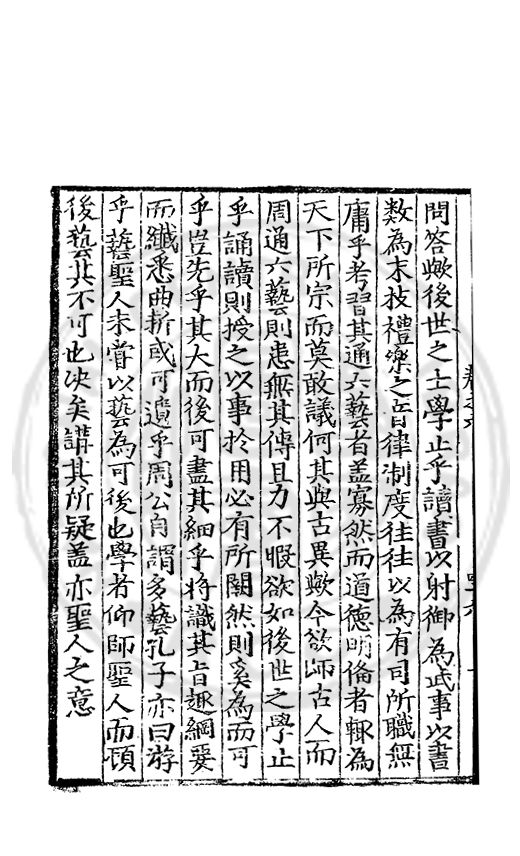 問答歟後世之士學止乎讀書以射御為武事以書
数為末技禮樂之音律制度往往以為有司所職無
庸乎考習其通六藝者盖寡然而道德明偹者輙為
天下所宗而莫敢議何其與古異歟今欲師古人而
周通六藝則患無其傳且力不暇欲如後世之學止
乎誦讀則授之以事扵用必有所闕然則奚為而可
乎豈先乎其大而後可盡其細乎將識其旨趣綱要
而纎悉曲折或可遺乎周公自謂多藝孔子亦曰游
乎藝聖人未嘗以藝為可後也學者仰師聖人而頓
後藝其不可也决矣講其所疑盖亦聖人之意